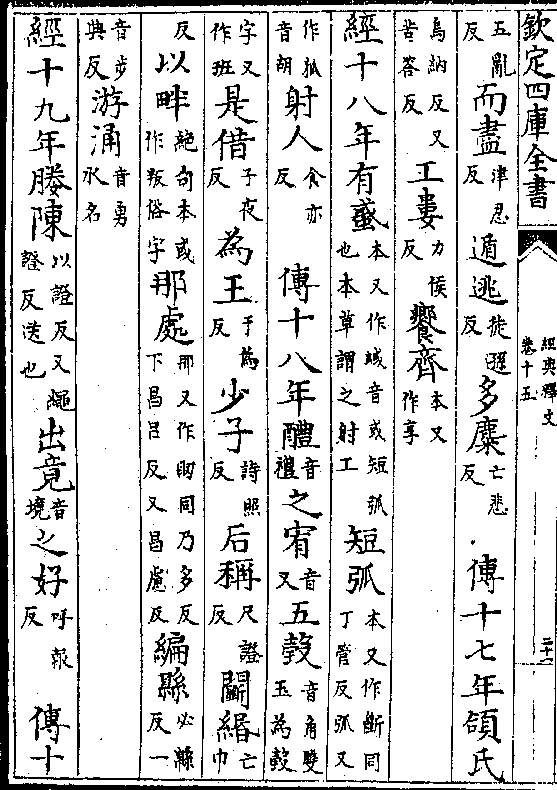 欽定四庫全書
經典釋文
卷十五
五亂反而盡津忍反遁逃徒遜反多麋亡悲反傳十七年頜氏
烏納反又苦答反工婁力侯反饗齊本又作享
經十八年有蜮本又作蜮音或短狐也本草謂之射工短弧本又作斷同丁管反弧又
作狐音胡射人食亦反傳十八年醴音禮之宥音又五瑴音角雙玉為瑴
字又作班是借子夜反為王于為反少子詩照反后稱尺證反鬭緡亡巾
反以畔絶句本或作叛俗字那處那又作䏧同乃多反下昌呂反又昌慮反編縣必縣反一
音步典反游涌音勇水名
經十九年媵陳以證反又繩證反送也出竟音境之好呼報反傳十